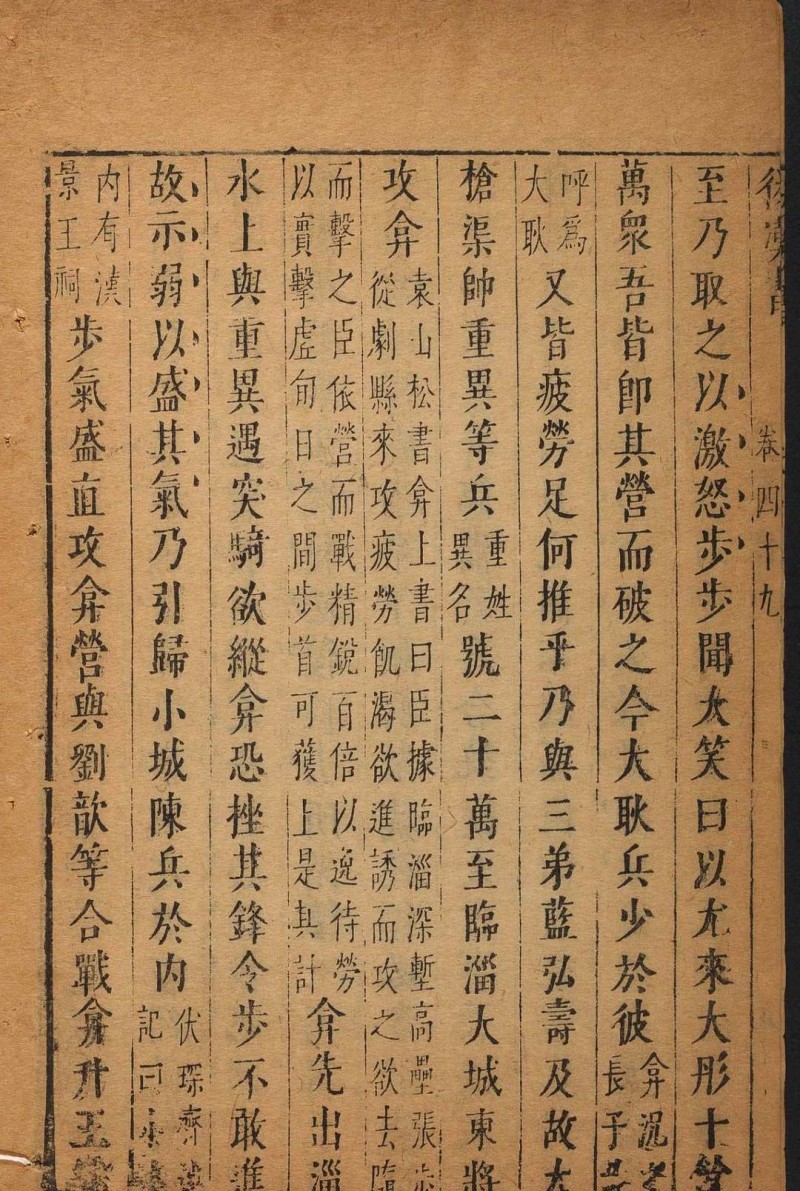 後漢書 卷四十九
至乃取之以激怒步步聞大笑曰以尤來大彤十餘
萬眾吾皆即其營而破之今大耿兵少於彼弇況長子
呼為大耿又皆疲勞足何推乎乃與三弟藍弘壽及故大
槍渠帥重異等兵重姓異名號二十萬至臨淄大城東將
攻弇袁山松書弇上書曰臣據臨淄深塹高壘張步從劇縣來攻疲勞飢渴欲進誘而攻之欲去隨
而擊之臣依營而戰精銳百倍以逸待勞以實擊虛旬日之間步首可獲上是其計弇先出淄
水上與重異遇突騎欲縱弇恐挫其鋒令步不敢進
故示弱以盛其氣乃引歸小城陳兵於內伏琛齊記曰小
內有漢景王祠步氣盛直攻弇營與劉歆等合戰弇升王宮